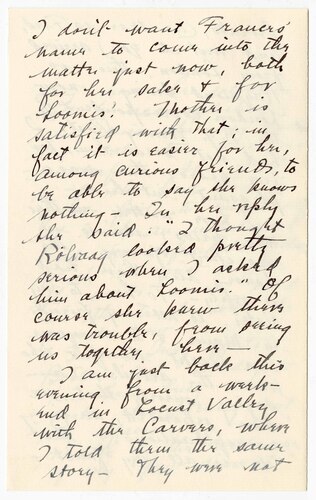 I don't want Frances'
name to come into the
matter just now, both
for her sake & for
Loomis'. Mother is
satisfied with that; in
fact it is easier for her,
among curious friends, to
be able to say she knows
nothing — In her reply
she said: "I thought
Rolvaag looked pretty
serious when I asked
him about Loomis." Of
course she knew there
was trouble, from seeing
us together here —
I am just back this
evening from a week-
end in Locust Valley
with the Carvers, where
I told them the same
story — They were not